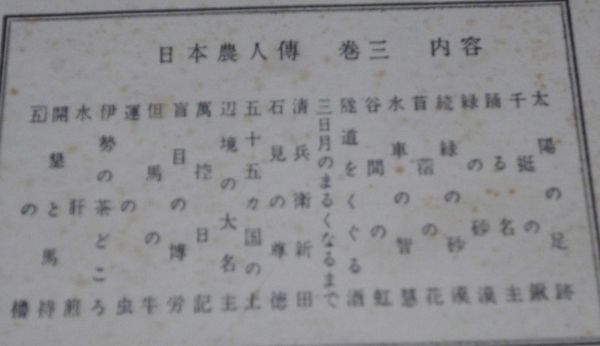 日本農人傳 巻三 内容
太陽の足跡
千挺の鍬
踊る名主
緑の砂漠
続緑の砂漠
苜蓿の花
水車の智慧
谷間の虹
隧道をくぐる酒
三日月のまるくなるまで
清兵衛新田
石見の尊徳
五十五カ国の土
辺境の大名主
萬控日記
盲目の博労
但馬の牛
運の虫
伊勢の茶どころ
水肝煎
開墾と馬持
五の櫓